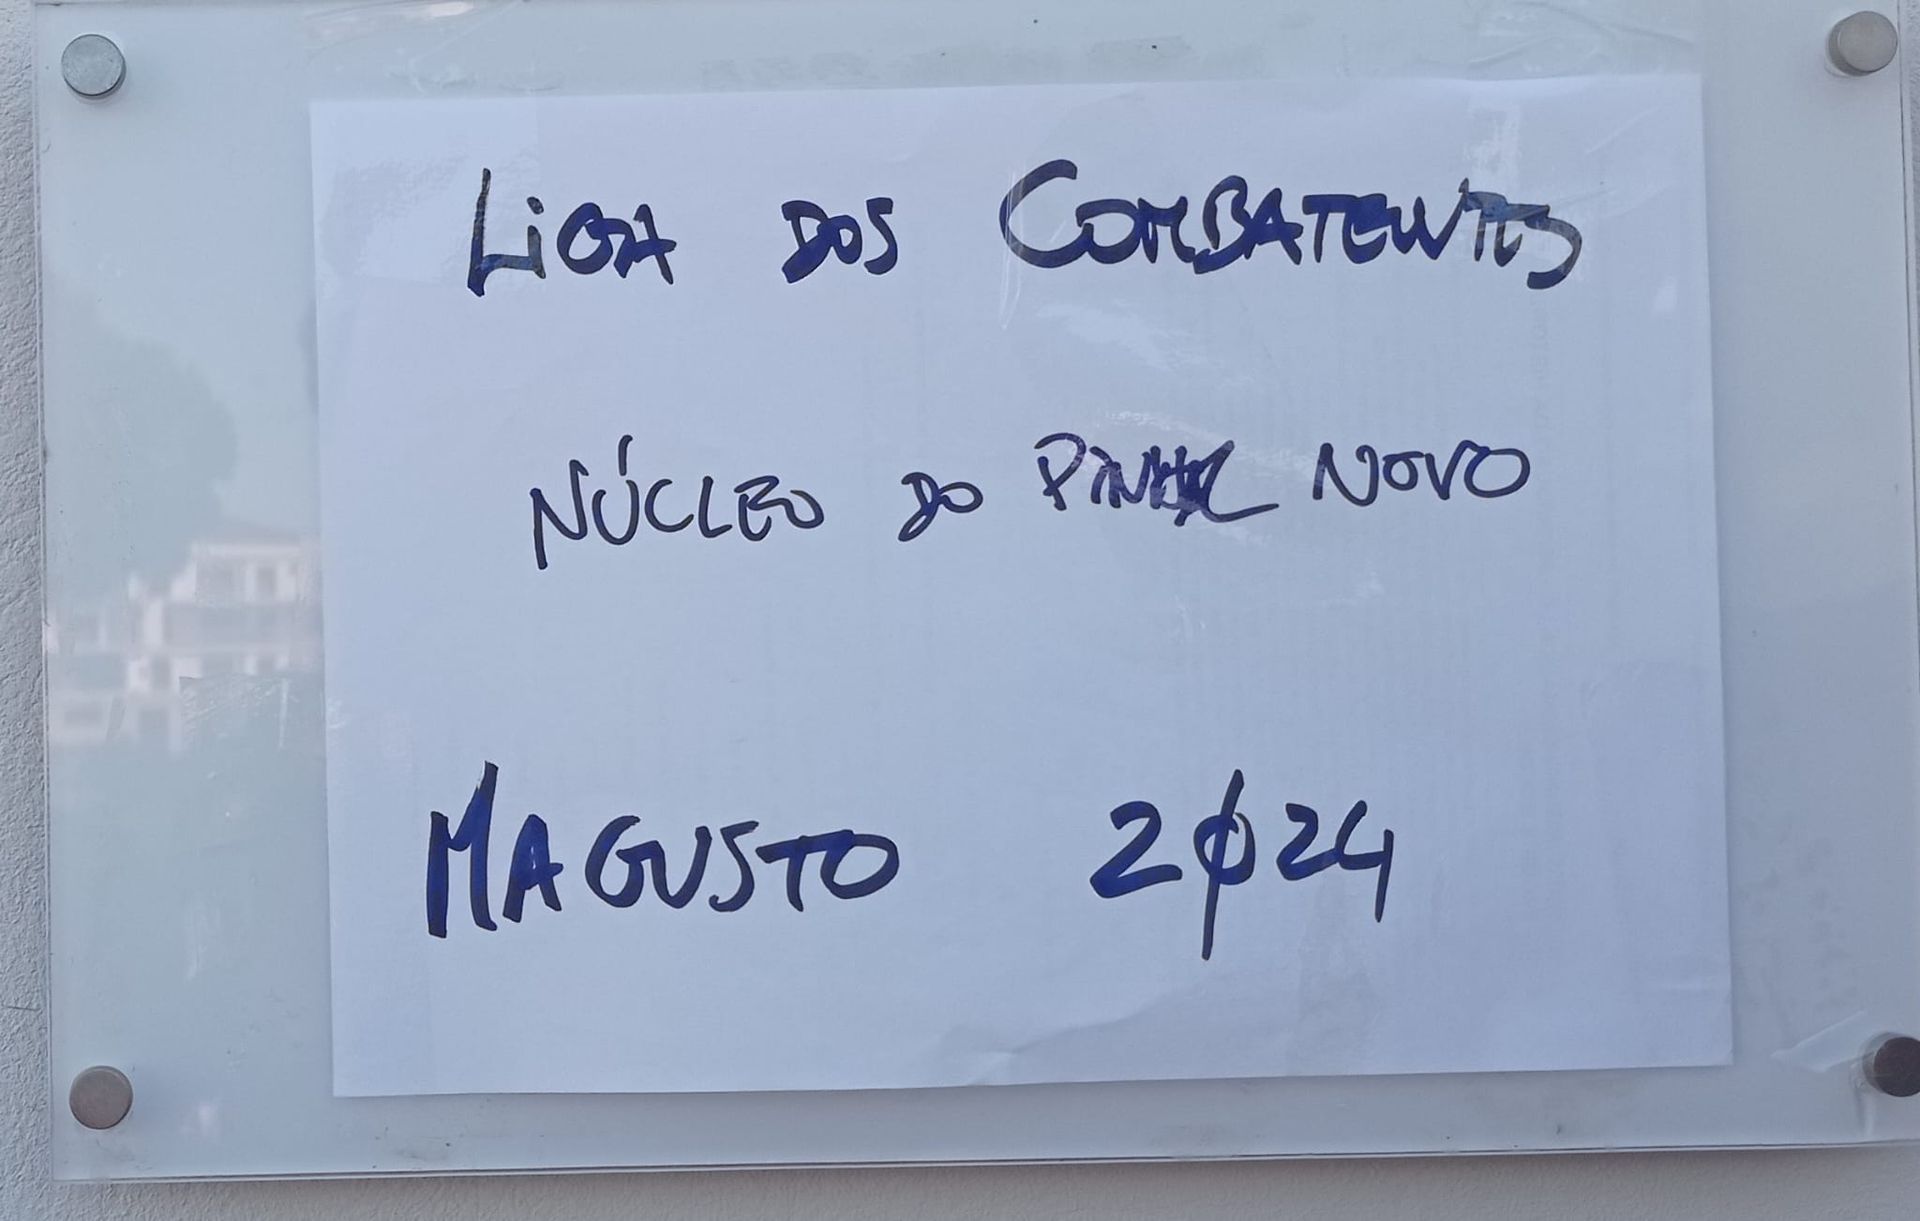 LiGA DOS COMBATENTES
NÚCLEO DO PINHAL NOVO
MAGUSTO 2024